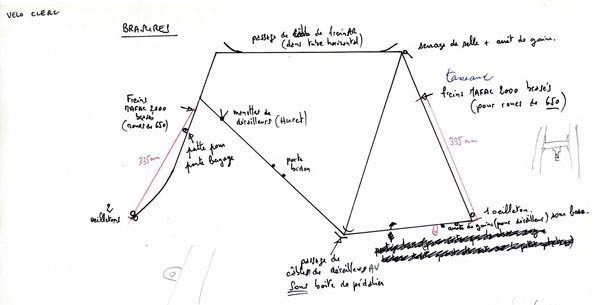 VELO CLERC
BRASURES
passage de câble de frein AR
(dans tube horizontal)
serrage de selle + arrêt de gaine.
Freins
MAFAC 2000
brasés
(roues de 650)
tasseaux
freins MAFAC 2000 brasés
(pour roues de 650)
manettes de
dérailleurs (Huret)
patte pour
porte bagage
335 mm
porte
bidon
335 mm
2
oeilletons
1 oeilleton.
arrêt de gaine (pour dérailleur) sous base.
passage de
câbles de dérailleurs AV
sous boîte de pédalier